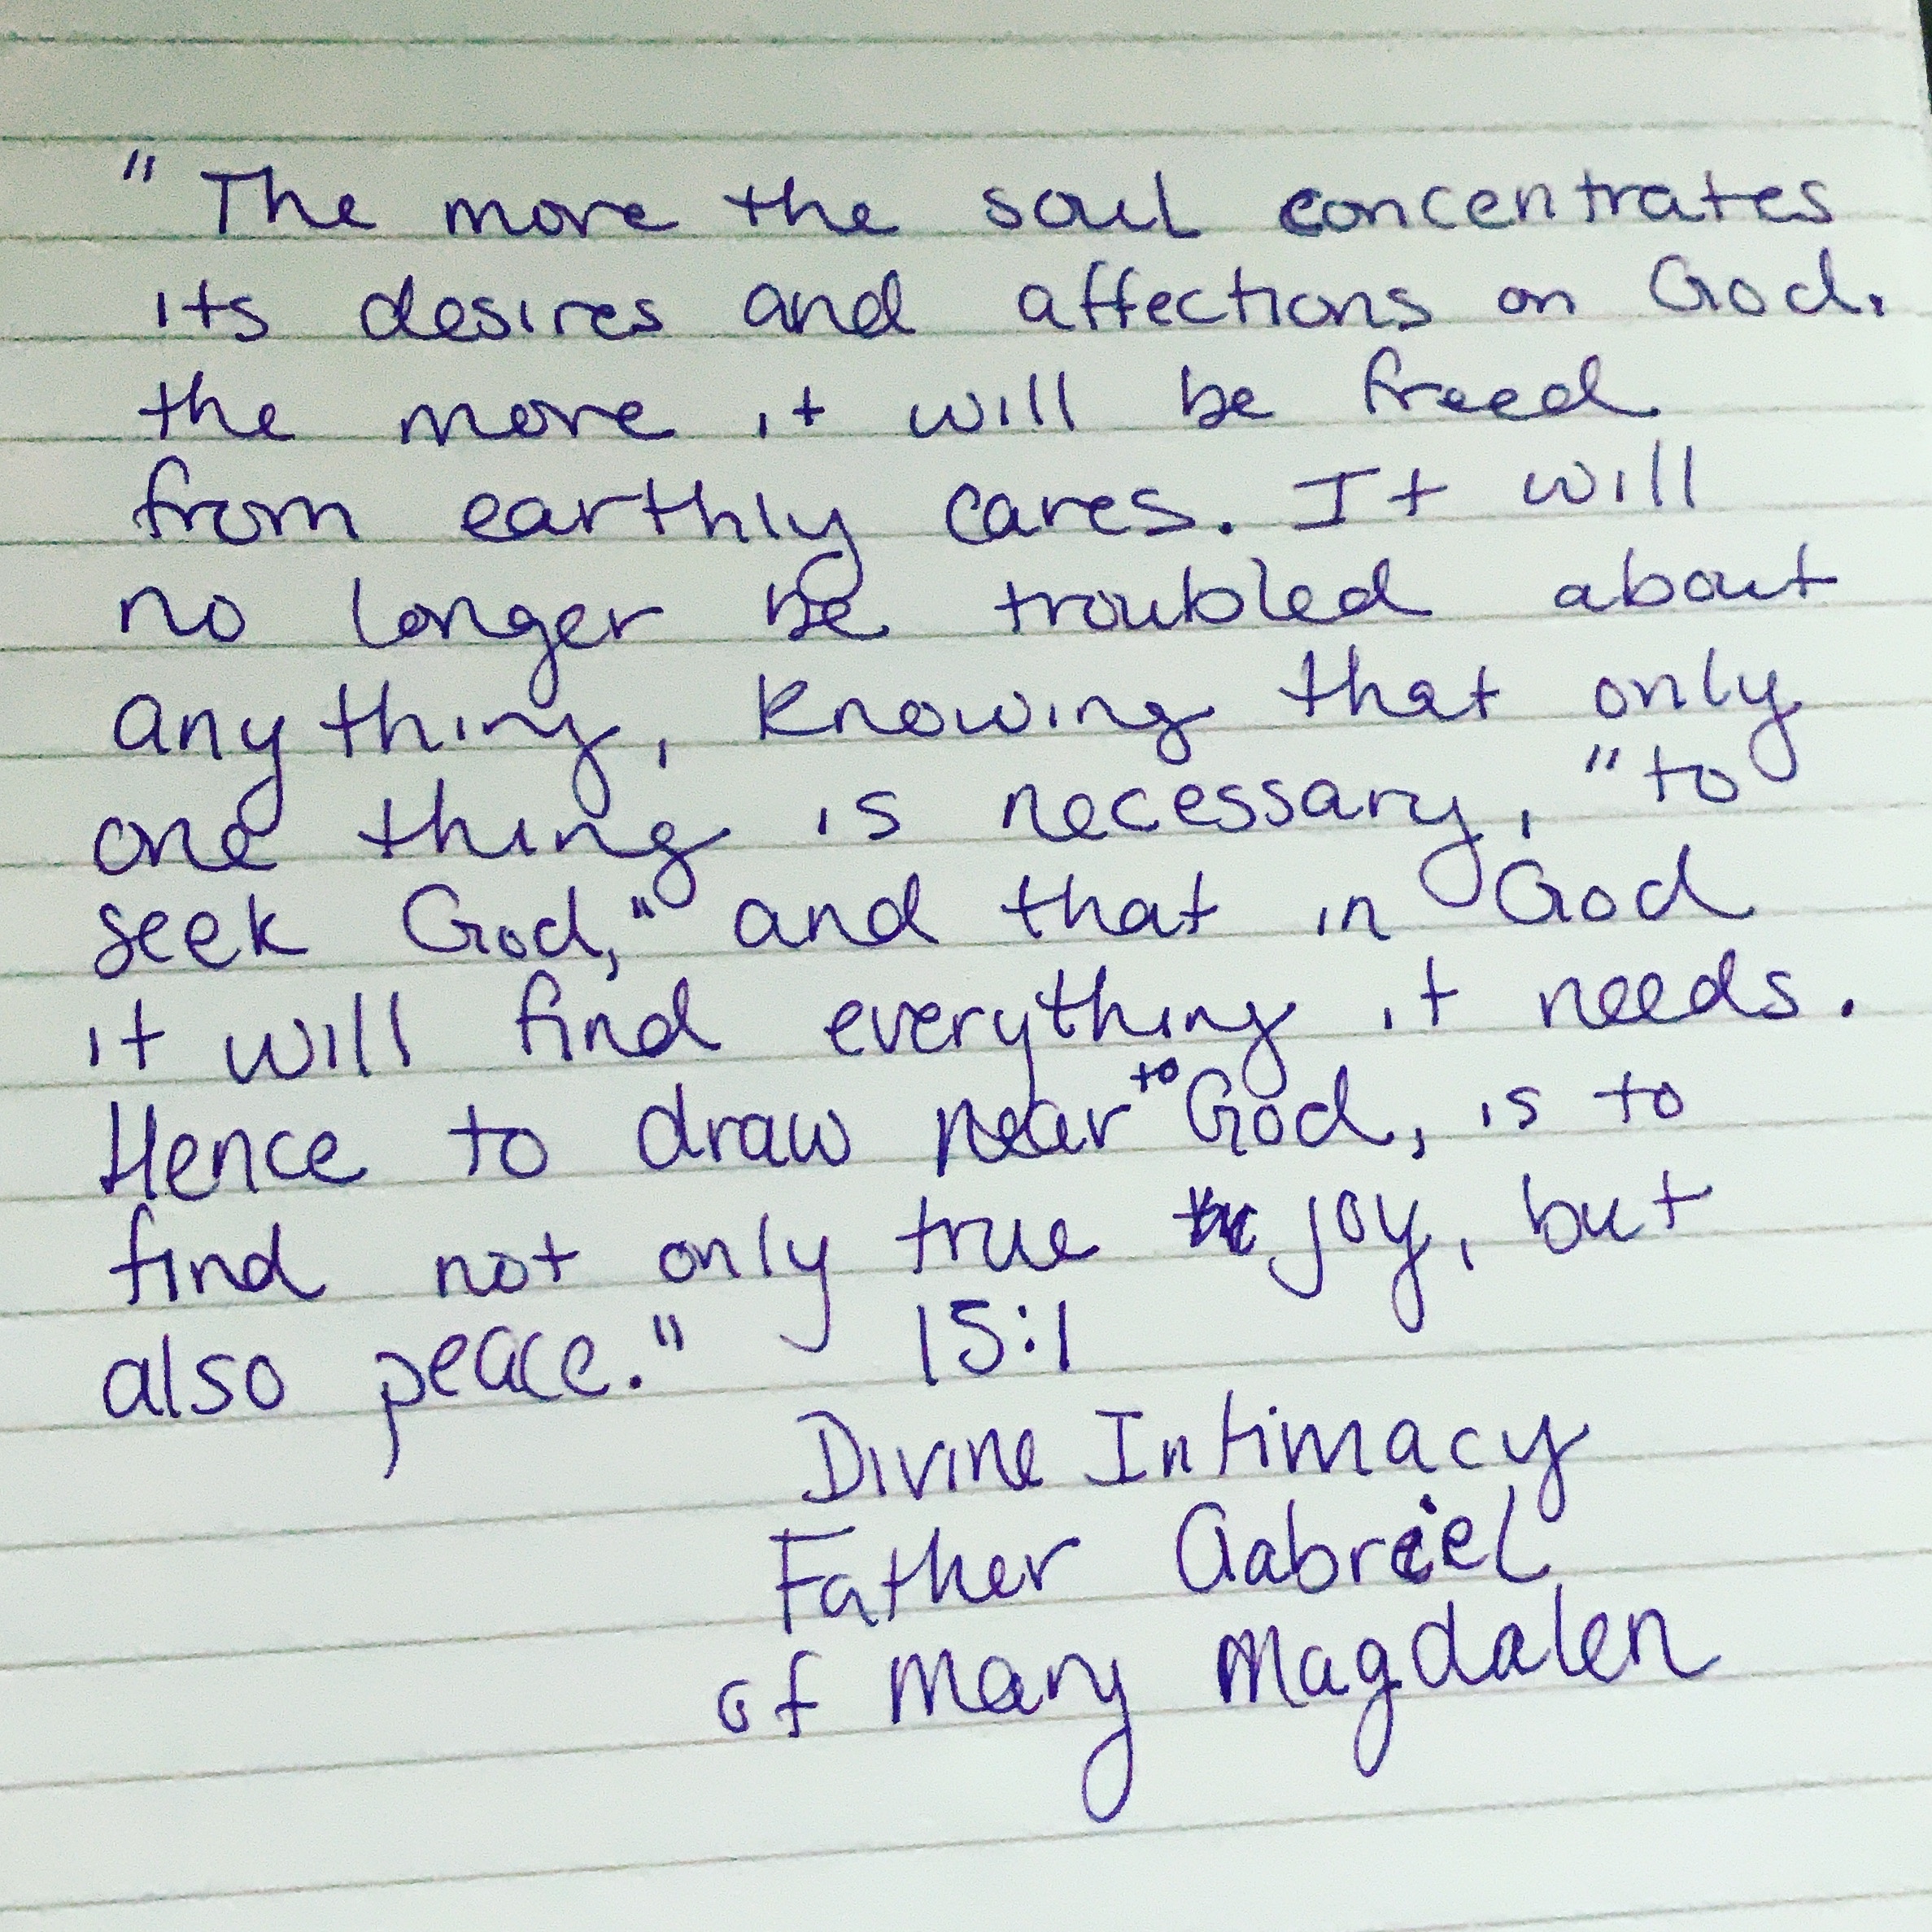 "The more the soul concentrates
its desires and affections on God,
the more it will be freed
from earthly cares. It will
no longer be troubled about
anything, knowing that only
one thing is necessary, "to
seek God," and that in God
it will find everything it needs.
Hence to draw near to God, is to
find not only true joy, but
also peace." 15:1
Divine Intimacy
Father Gabriel
of Mary Magdalen